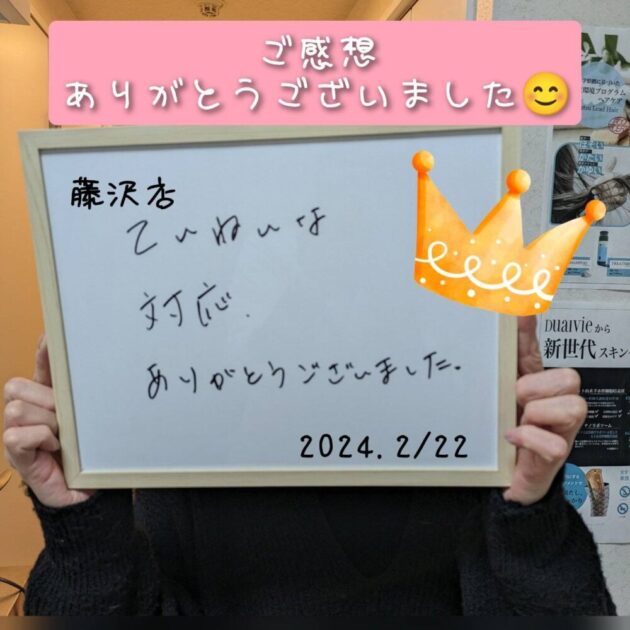 ご感想
ありがとうございました😊
藤沢店
ていねいな
対応.
ありがとうございました。
2024. 2/22
環境プログラム
ヘアケア
DUALVIEから
新世代スキン